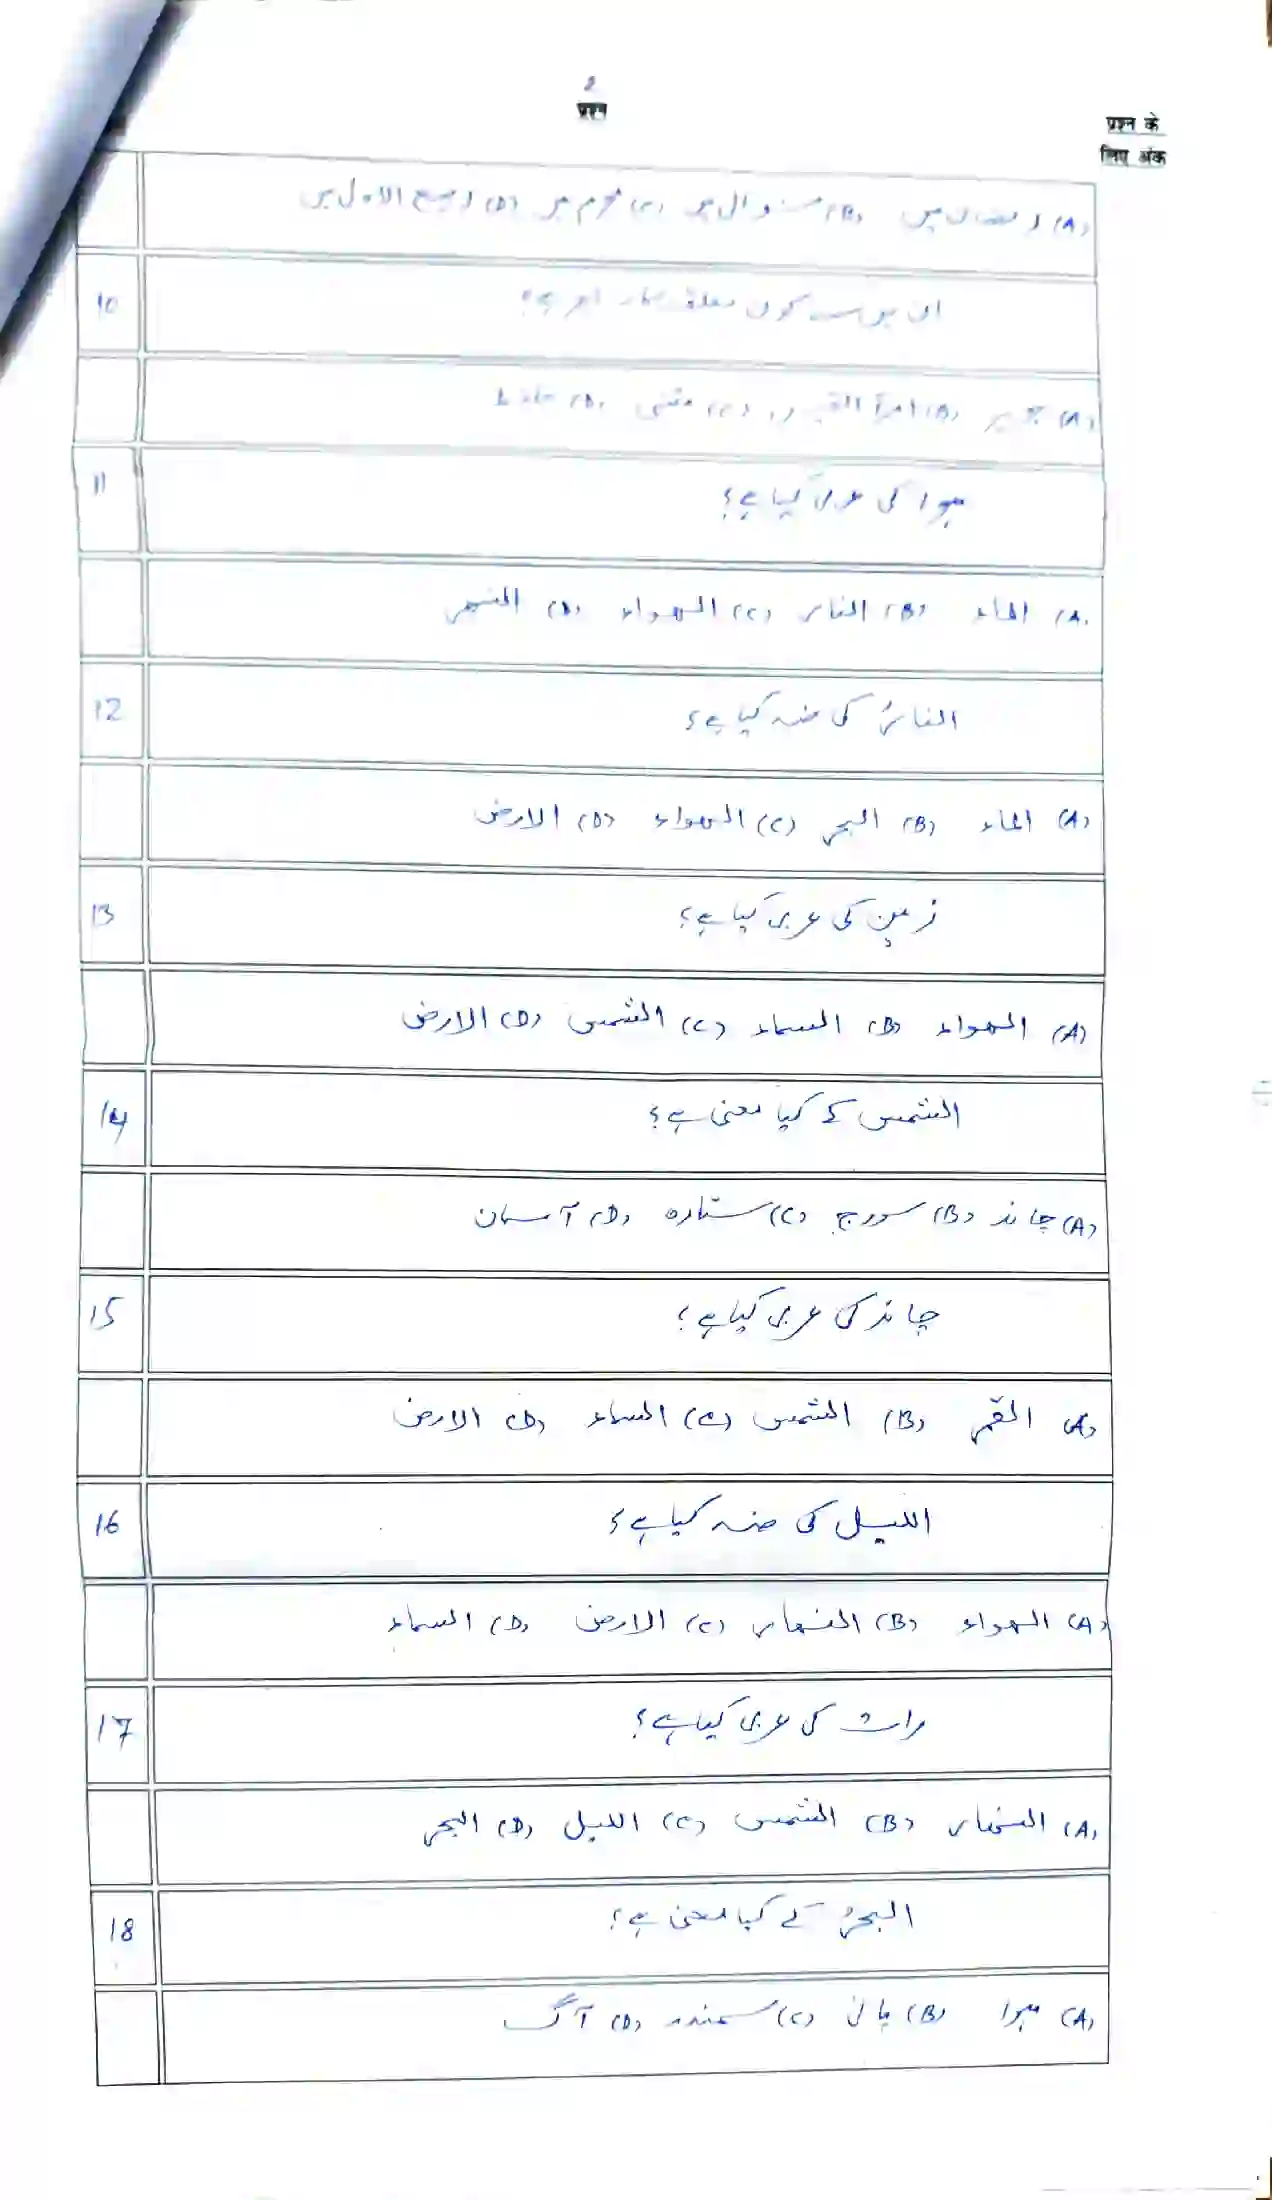 2
प्रश्न
प्रश्न के
लिए अंक
(A) رمضان میں (B) شوال میں (C) محرم میں (D) ربیع الاول میں
10 ان میں سے کون معلقہ نگار ہے؟
(A) جریر (B) امرأ القیس (C) متنبی (D) حافظ
11 ہوا کی عربی کیا ہے؟
(A) الماء (B) النار (C) الهواء (D)
12 النارُ کی ضد کیا ہے؟
(A) الماء (B) البحر (C) الهواء (D) الارض
13 زمین کی عربی کیا ہے؟
(A) الهواء (B) السماء (C) الشمس (D) الارض
14 الشمس کے کیا معنی ہے؟
(A) چاند (B) سورج (C) ستارہ (D) آسمان
15 چاند کی عربی کیا ہے؟
(A) القمر (B) الشمس (C) السماء (D) الارض
16 اللیل کی ضد کیا ہے؟
(A) الهواء (B) النهار (C) الارض (D) السماء
17 رات کی عربی کیا ہے؟
(A) النهار (B) الشمس (C) اللیل (D) البحر
18 البحرُ کے کیا معنی ہے؟
(A) ہوا (B) پانی (C) سمندر (D) آگ